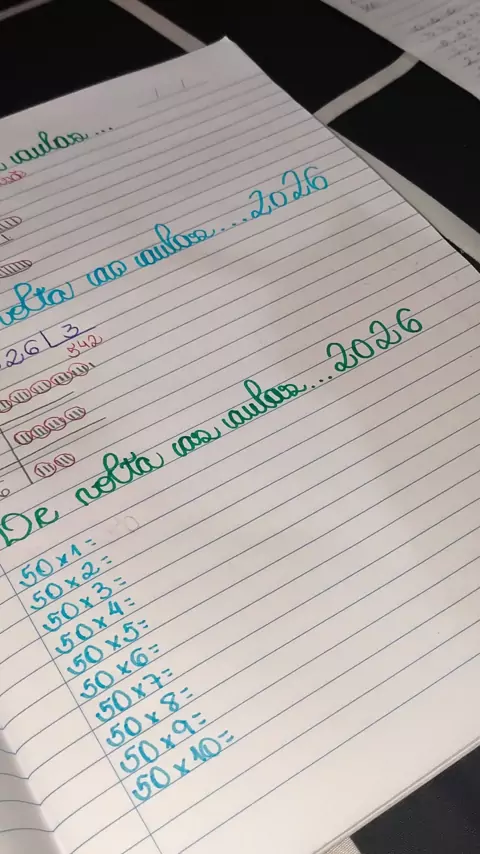 aulas...
volta as aulas...2026
26 3
342
De volta as aulas...2026
50x1=
50x2=
50x3=
50x4=
50x5=
50x6=
50x7=
50x8=
50x9=
50x10=